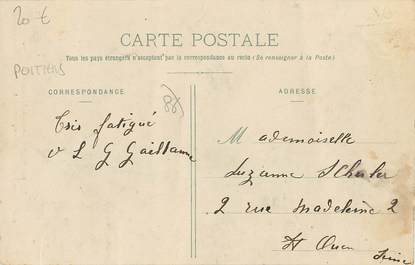 20 €
CARTE POSTALE
Tous les pays étrangers n'acceptent pas la correspondance au recto (Se renseigner à la Poste)
POITIERS
CORRESPONDANCE
(86)
ADRESSE
Très fatigué
Mademoiselle
Suzanne
2 rue Madeleine 2
St Ouen
Seine